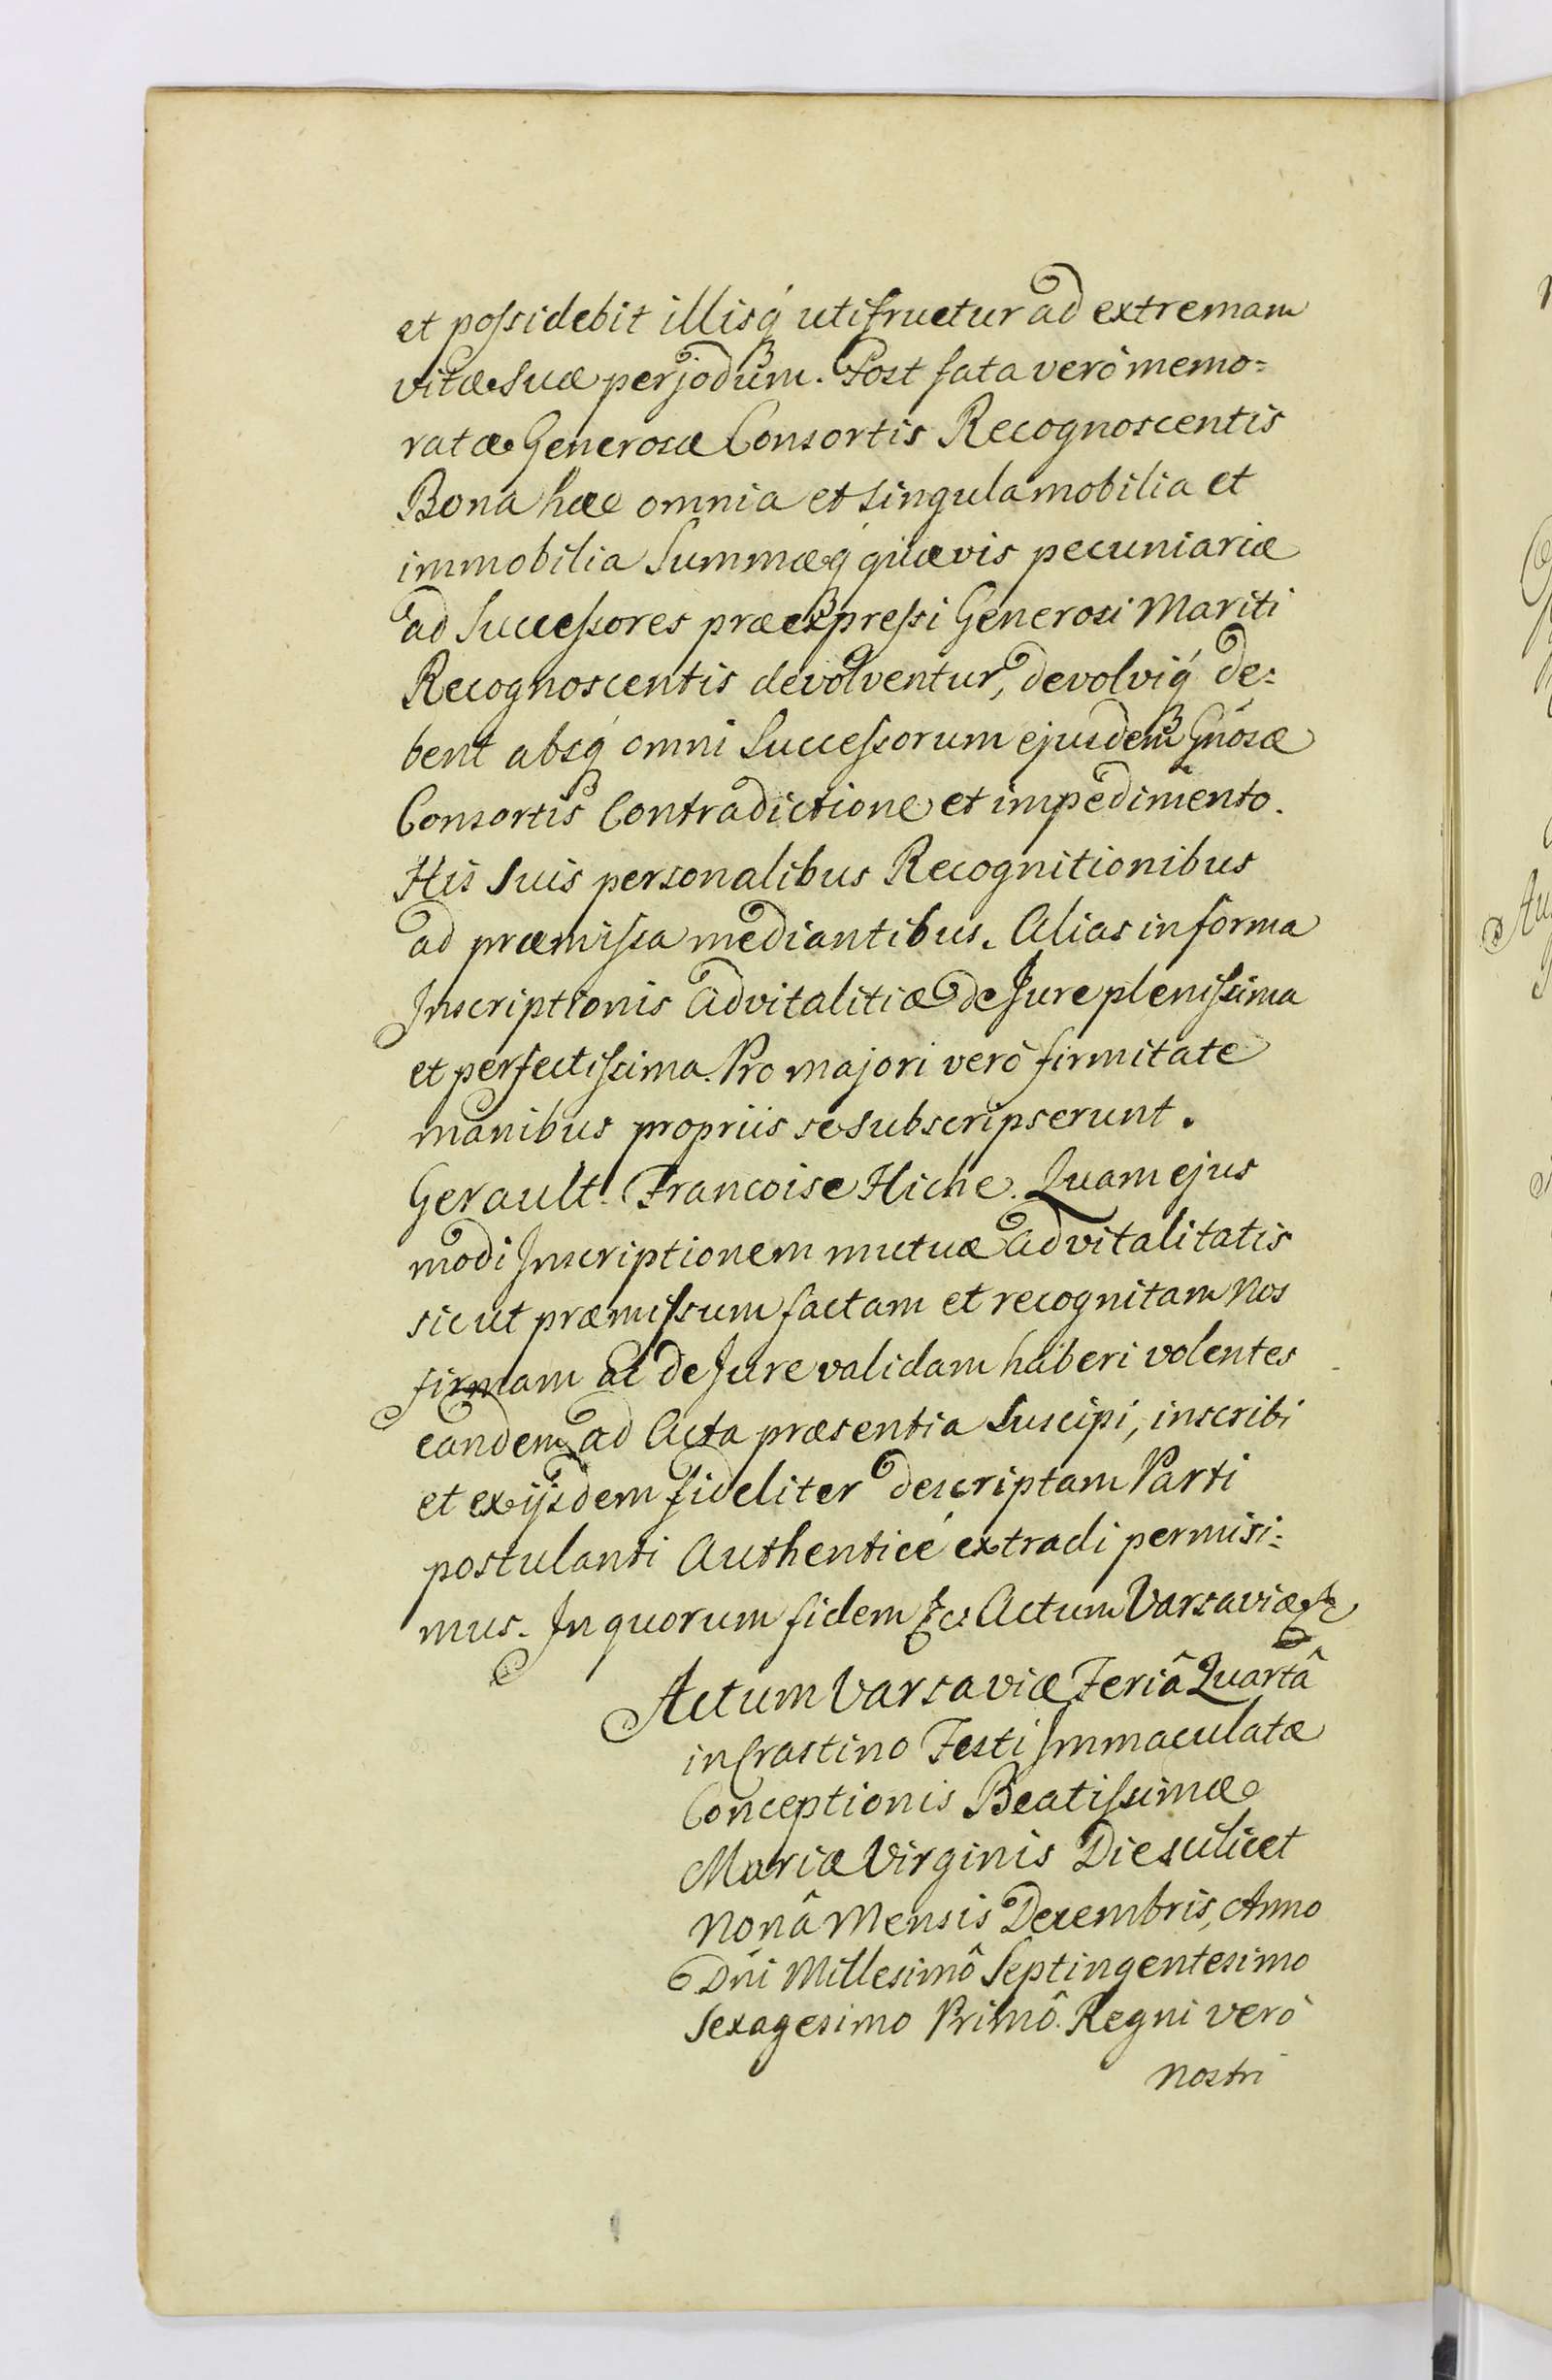 et possidebit illisq́ utifruetur ad extremam
vitæ suæ perjodum. Post fata verò memo=
ratæ Generosæ Consortis Recognoscentis
Bona hæc omnia et singula mobilia et
immobilia Summæq́ quævis pecuniariæ
ad Successores præexpressi Generosi Mariti
Recognoscentis devolventur, devolviq́ de=
bent absq́ omni Successorum ejusdem Gńosæ
Consortis Contradictione et impedimento.
His suis personalibus Recognitionibus
ad præmissa mediantibus. Alias in forma
Inscriptionis Advitalitiæ de Jure plenissima
et perfectissima. Pro majori verò firmitate
manibus propriis se subscripserunt.
Gerault. Francoise Hiche. Quam ejus
modi Inscriptionem mutuæ Advitalitatis
sicut præmissum factam et recognitam Nos
firmam ac de Jure validam haberi volentes
eandem ad Acta præsentia suscipi, inscribi
et ex ijsdem fideliter descriptam Parti
postulanti Authenticé extradi permisi=
mus. In quorum fidem &c: Actum Varsaviæ &
Actum Varsaviæ Feriâ Quartâ
in Crastino Festi Immaculatæ
Conceptionis Beatissimæ
Mariæ Virginis Die scilicet
Nonâ Mensis Decembris, Anno
Dńi Millesimô Septingentesimo
Sexagesimo Primô. Regni verò
nostri